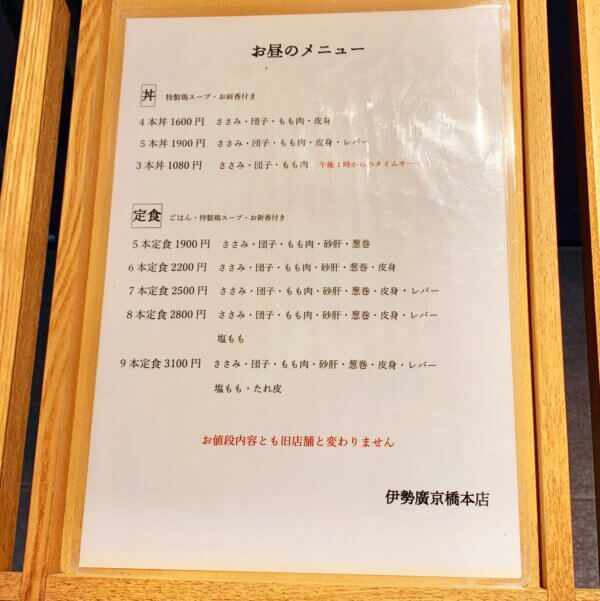 お昼のメニュー
丼 特製鶏スープ・お新香付き
4本丼1600円 ささみ・団子・もも肉・皮身
5本丼1900円 ささみ・団子・もも肉・皮身・レバー
3本丼1080円 ささみ・団子・もも肉 午後1時からのタイムサービス
定食 ごはん・特製鶏スープ・お新香付き
5本定食1900円 ささみ・団子・もも肉・砂肝・葱巻
6本定食2200円 ささみ・団子・もも肉・砂肝・葱巻・皮身
7本定食2500円 ささみ・団子・もも肉・砂肝・葱巻・皮身・レバー
8本定食2800円 ささみ・団子・もも肉・砂肝・葱巻・皮身・レバー
塩もも
9本定食3100円 ささみ・団子・もも肉・砂肝・葱巻・皮身・レバー
塩もも・たれ皮
お値段内容とも旧店舗と変わりません
伊勢廣京橋本店